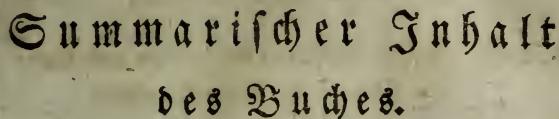 Summariſcher Inhalt
des Buches.